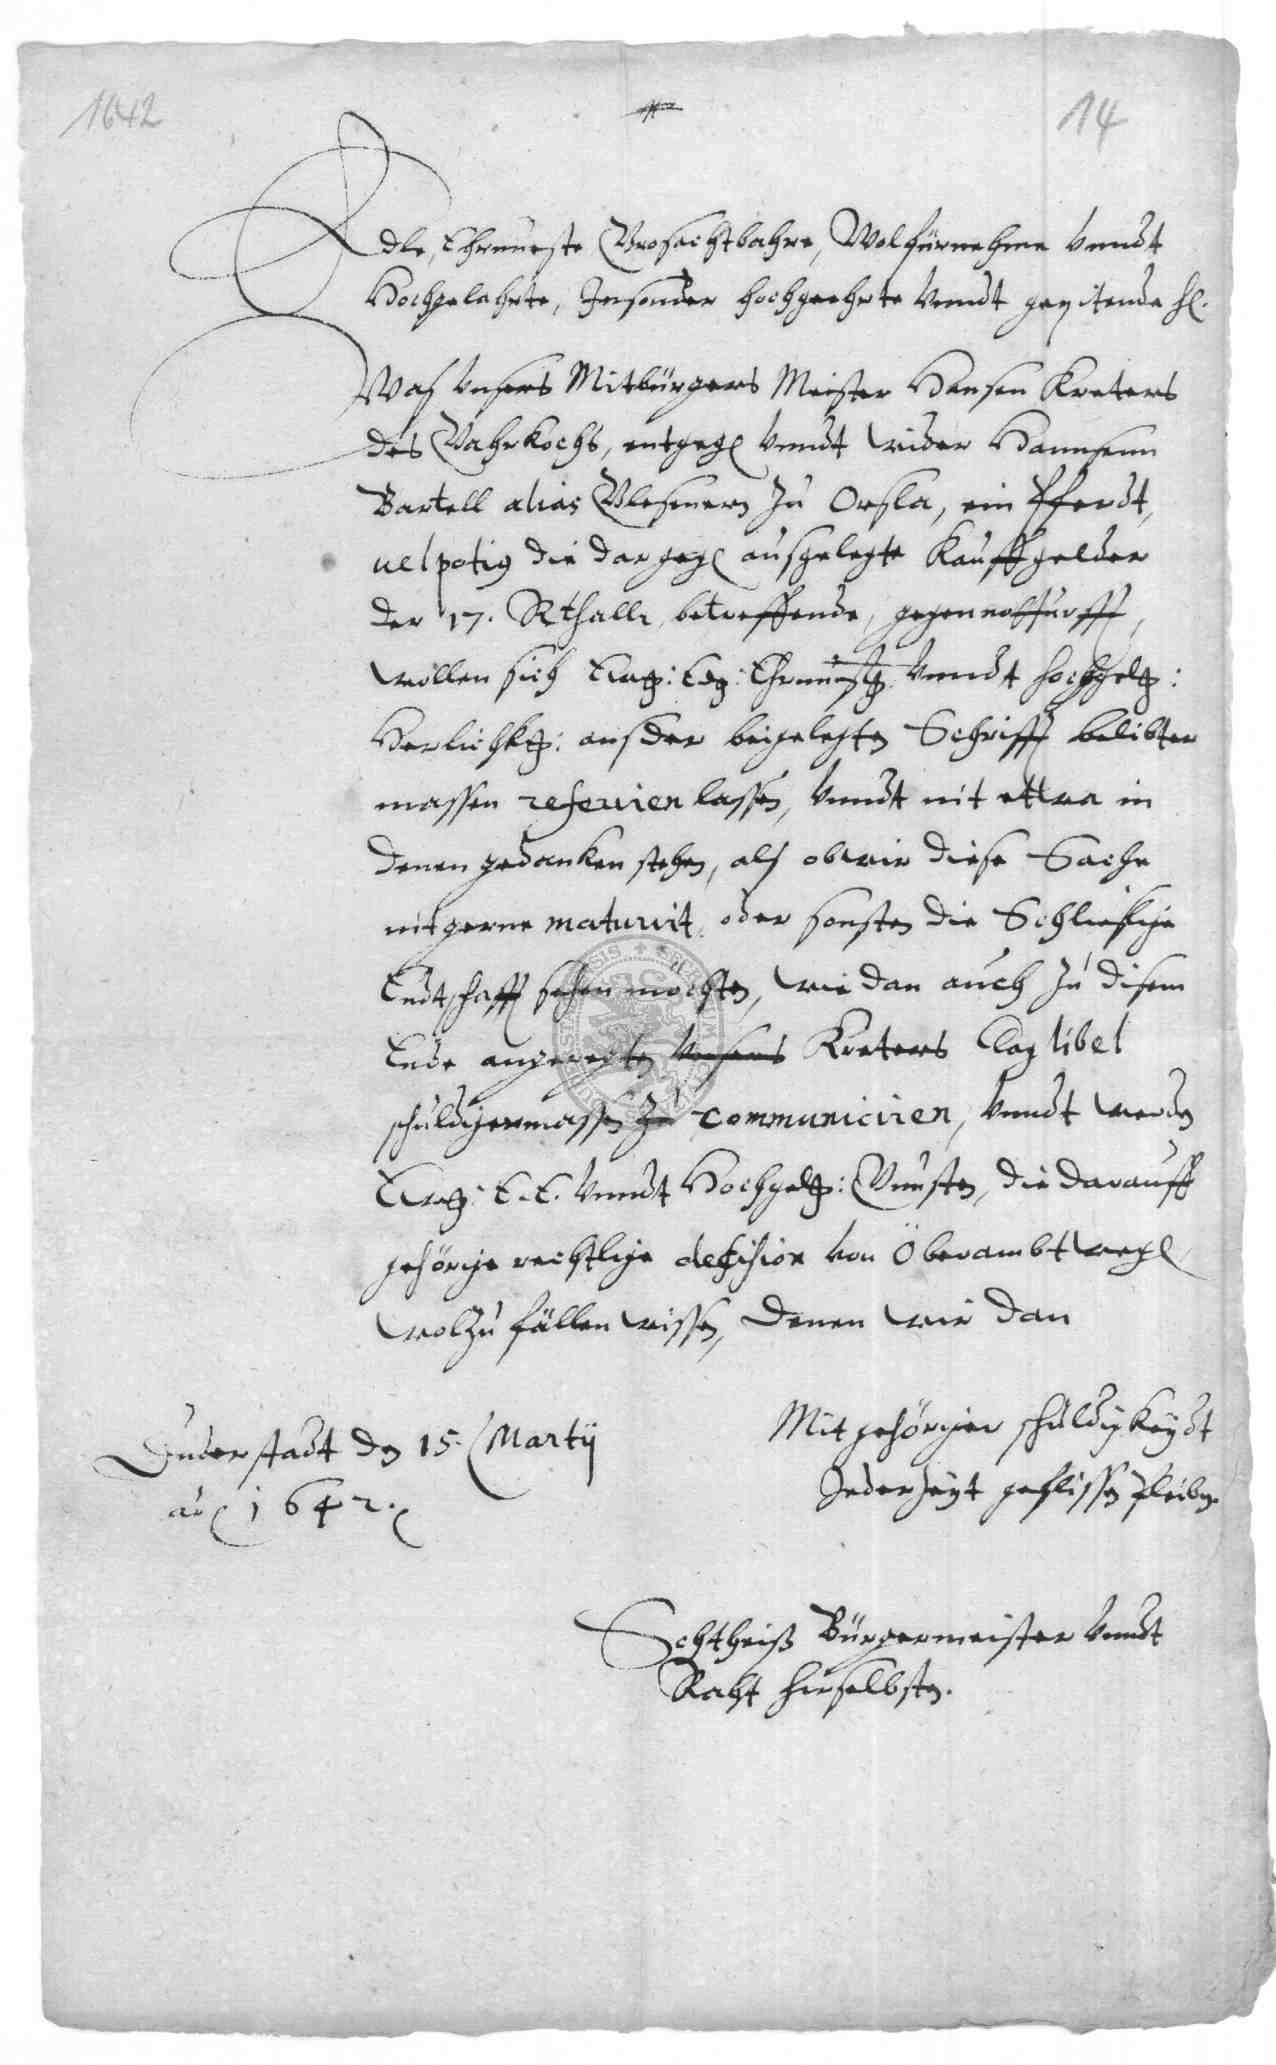 1642
14
Edle, Ehrnueste Grosachtbahre, Wolfürnehme vnndt
Hochgelahrte, Insonder hochgeehrte vnndt gepitende h.
Was vnsers Mitbürgers Meister Hansen Kreters
des Gahrkochs, entgegen vnndt wider Hannsenn
Bartell alias Glesenern zu Orsla, ein Pferdt,
uel potius die dargegen ausgelegte Kauffgelder
der 17. Rthall. betreffende, gegennotturfft,
wollen sich Ew: Ed: Ehrnuest: vnndt hochgel:
Herlichk: aus der beigelegten Schrifft belibter
massen referiren lassen, vnndt nit ettwa in
denen gedanken stehen, als ob wir diese Sache
nit gerne maturirt, oder sonsten die Schließliche
Endtschafft sehen mochten, wie dan auch zu disem
Ende angeregten Kreters Clag libel
schuldigermassen communiciren, vnndt werden
E. E. vnndt Hochgel: Gunsten, die darauff
gehörige rechtliche decision von Oberambtwegen
wol zu fällen wissen, denen wir dan
Mit gehöriger schuldigkeydt
Jederzeyt geflissen pleiben.
Duderstadt den 15. Martij
ao 1642.
Schtheiß Bürgermeister vnndt
Raht hirselbsten.